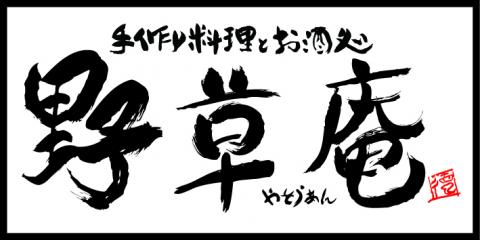 手作り料理とお酒処
野草庵
やそうあん